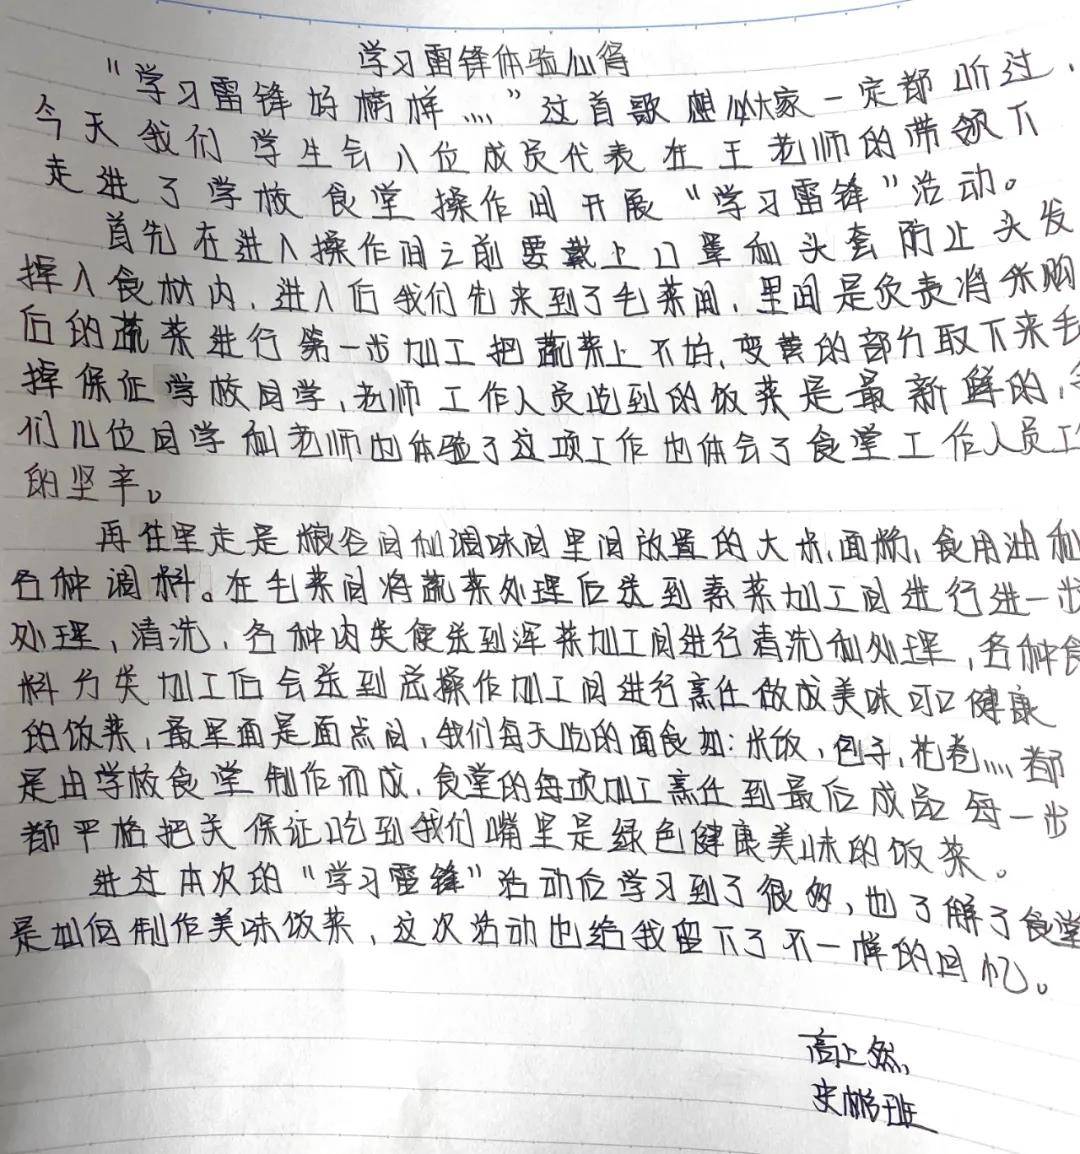 学习雷锋体验心得
“学习雷锋好榜样……”这首歌想必大家一定都听过.
今天我们学生会八位成员代表在王老师的带领下
走进了学校食堂操作间开展“学习雷锋”活动。
首先在进入操作间之前要戴上口罩和头套防止头发
掉入食材内.进入后我们先来到了毛菜间,里间是负责将采购
后的蔬菜进行第一步加工把蔬菜上不好,变黄的部分取下来
掉保证学校同学,老师工作人员吃到的饭菜是最新鲜的,
们几位同学和老师也体验了这项工作也体会了食堂工作人员工
的坚辛。
再往里走是粮谷间和调味间里间放置的大米,面粉,食用油和
各种调料。在毛菜间将蔬菜处理后送到素菜加工间进行进一步
处理,清洗,各种肉类便送到浑菜加工间进行清洗和处理,各种食
料分类加工后会送到总操作加工间进行烹饪做成美味可口健康
的饭菜,最里面是面点间,我们每天吃的面食如:米饭,包子,花卷……都
是由学校食堂制作而成.食堂的每项加工烹饪到最后成品每一步
都严格把关保证吃到我们嘴里是绿色健康美味的饭菜。
进过本次的“学习雷锋”活动后学习到了很多,也了解了食堂
是如何制作美味饭菜,这次活动也给我留下了不一样的回忆。
高上然
鹏班